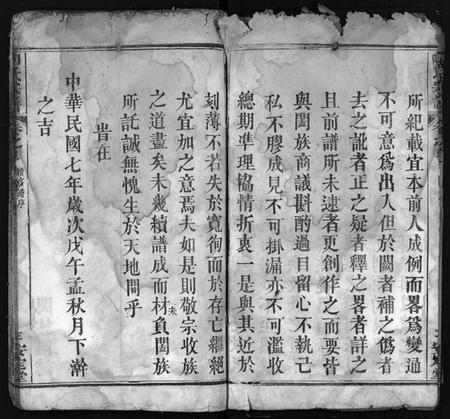 所紀載宜本前人成例而畧爲變通
不可意爲出入但於闕者補之僞者
去之訛者正之疑者釋之畧者詳之
且前譜所未逮者更創作之而要皆
與閤族商議斟酌過目留心不執己
私不膠成見不可掛漏亦不可濫收
總期準理協情折衷一是與其近於
刻薄不若失於寬徇而於存亡繼絕
尤宜加之意焉夫如是則敬宗收族
之道盡矣未幾續譜成而材未負閤族
所託誠無愧生於天地間乎
旹在
中華民國七年歲次戊午孟秋月下澣
之吉